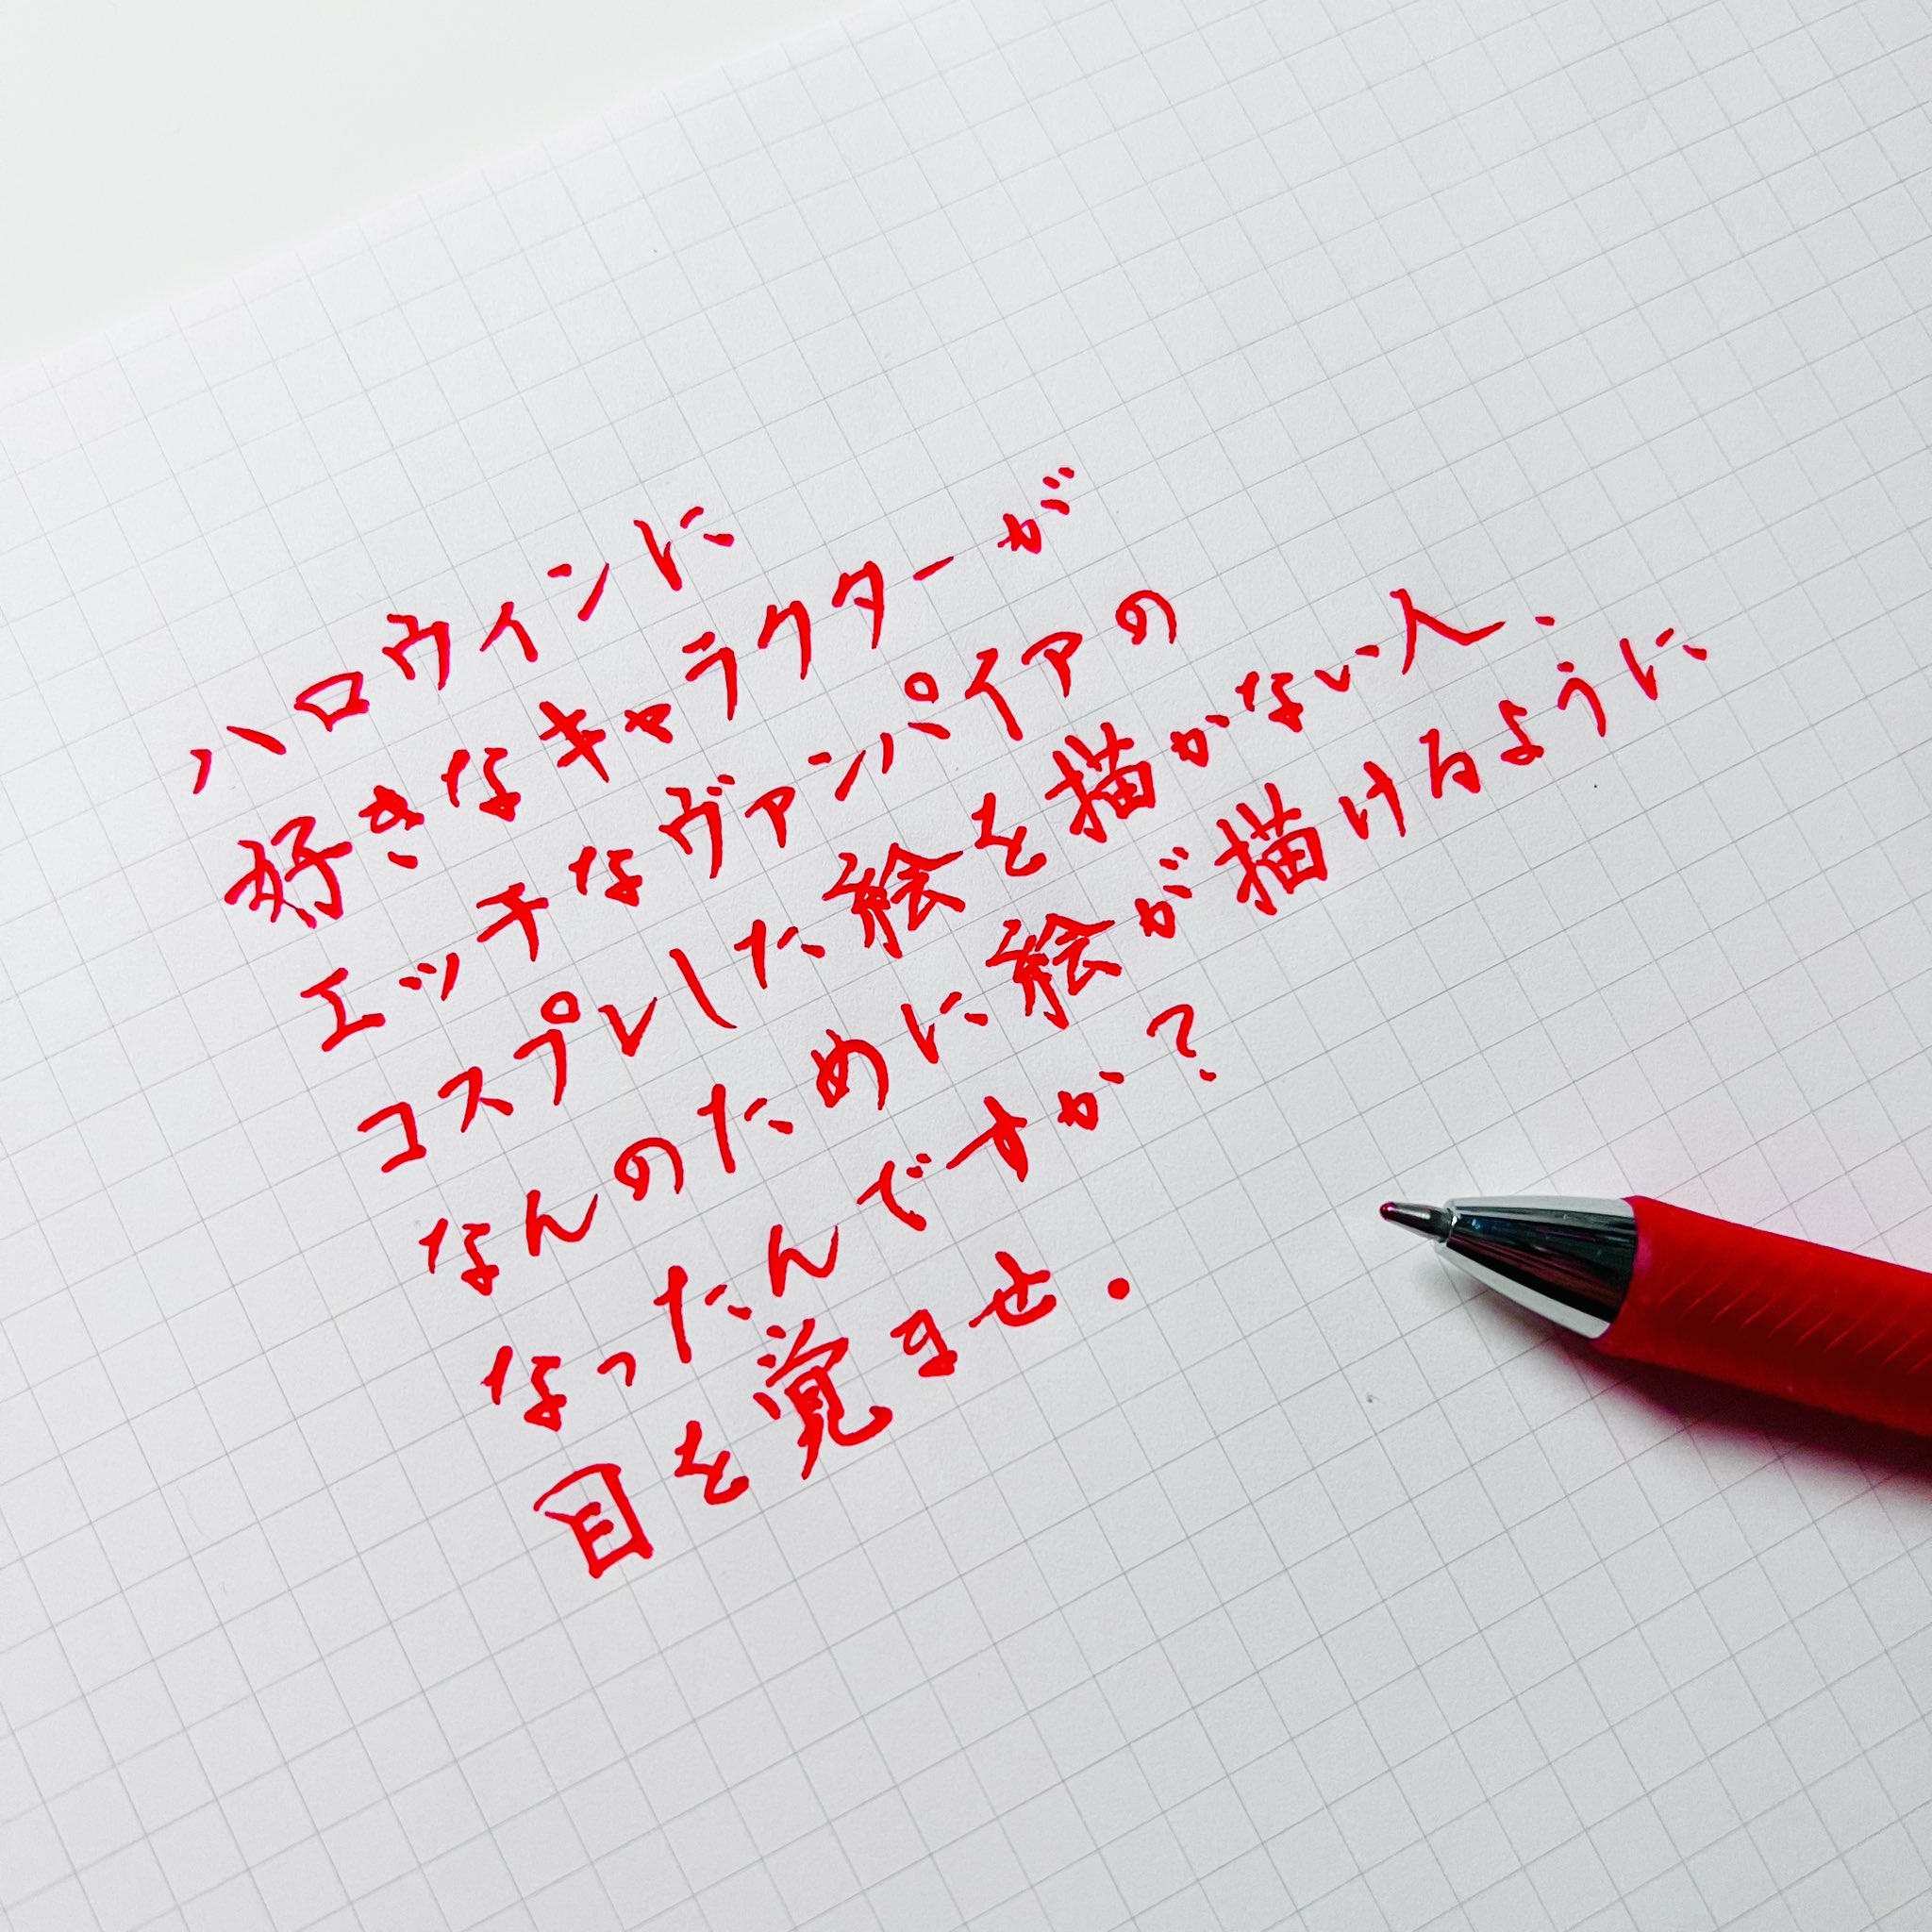 ハロウィンに
好きなキャラクターが
エッチなヴァンパイアの
コスプレした絵を描かない人、
なんのために絵が描けるように
なったんですか?
目を覚ませ.